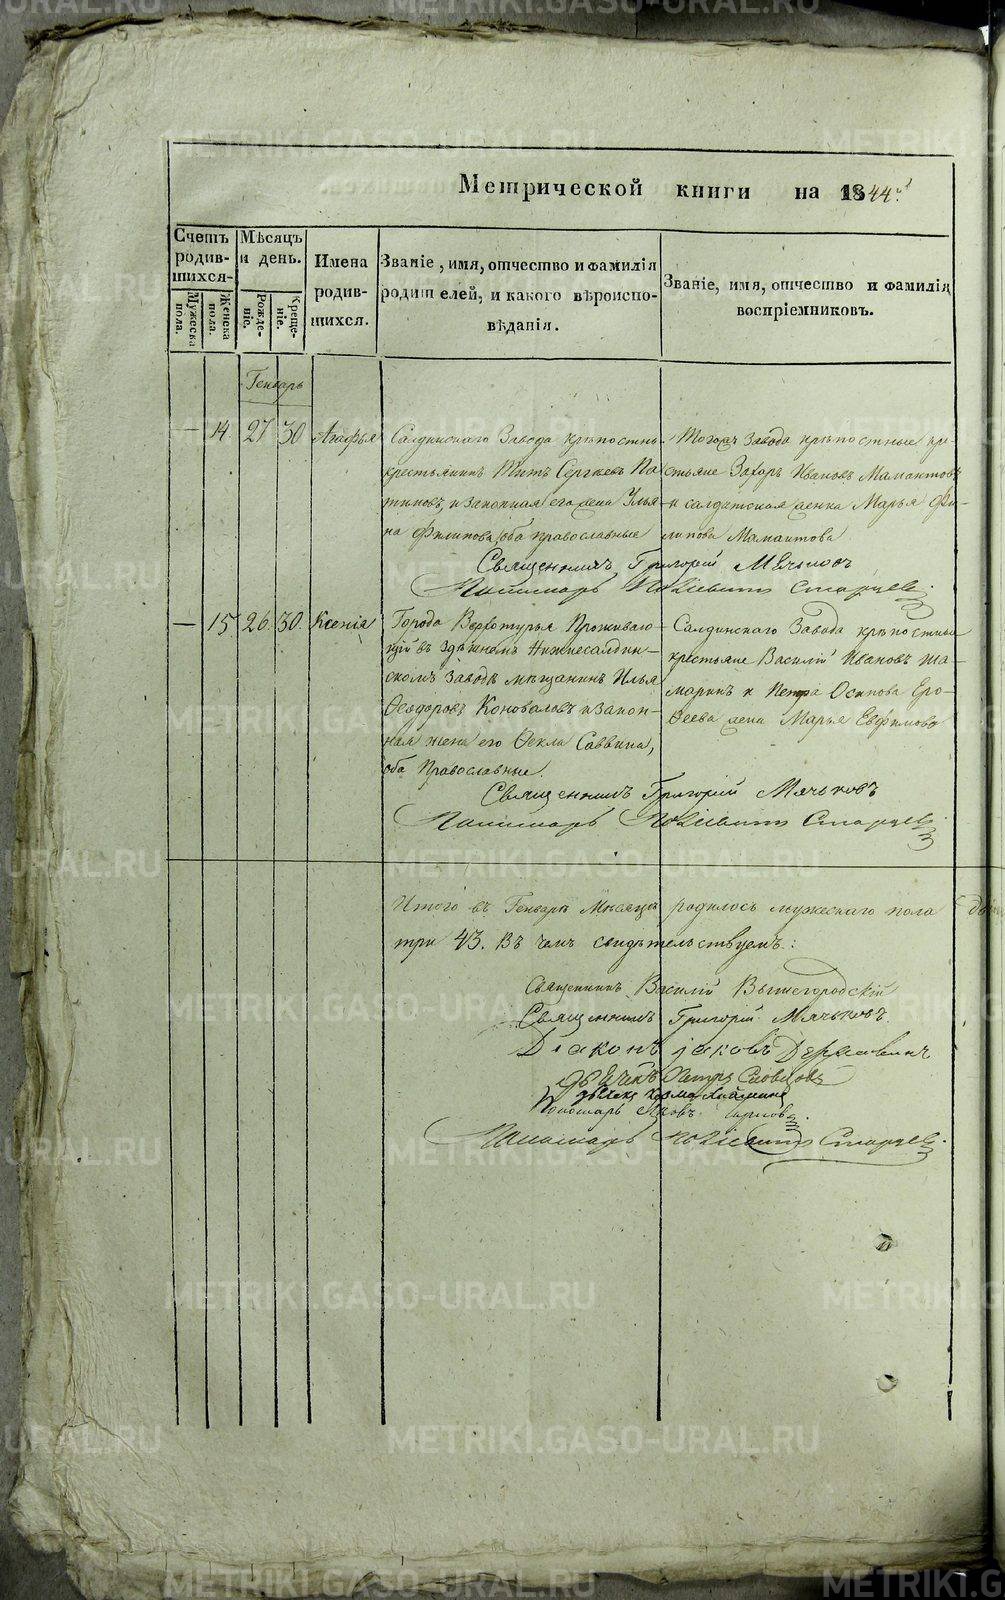 METRIKI.GASO-URAL.RU
Метрической книги на 1844й
Счетъ родившихся.
Мужеска пола.
Женска пола.
Мѣсяцъ и день.
Рожденіе.
Крещеніе.
Имена родившихся.
Званіе, имя, отчество и фамилія родителей, и какого вѣроисповѣданія.
Званіе, имя, отчество и фамилія воспріемниковъ.
Генварь
— 14. 27 30 Агафья
Салдинскаго Завода крѣпостны
крестьянинъ Титъ Сергѣевъ Па
тиковъ, и законная его жена Улья
на Филипова, оба православные
Тогожъ завода крѣпостные кре-
стьяне Захаръ Ивановъ Мамантовъ
и салдатская женка Марья Фи-
липова Мамантова
Священникъ Григорій Мячковъ
Пономарь Старцев
— 15 26. 30. Ксенія
Города Верхотурья Проживаю-
щій въ здѣшнемъ Нижнесалдин-
скомъ Заводѣ мѣщанинъ Илья
Ѳеодоровъ Коноваловъ и закон-
ная жена его Ѳекла Саввина,
оба Православные.
Салдинскаго Завода крѣпостныя
крестьяне Василій Ивановъ Ша-
маринъ и Петра Осипова Еро-
ѳеева жена Марья Евфимова
Священникъ Григорій Мячьковъ
Пономарь Старцев
Итого въ Генварѣ Мѣсяцѣ родилось мужескаго пола
три 43. Въ чемъ свидѣтельствуемъ:
Священникъ Василій Вышегородскій
Священникъ Григорій Мячьковъ
Діаконъ Іаковъ Державинъ
Дьячекъ Петръ Словцовъ
Дьячекъ Козма
Пономарь
Пономарь Старцев